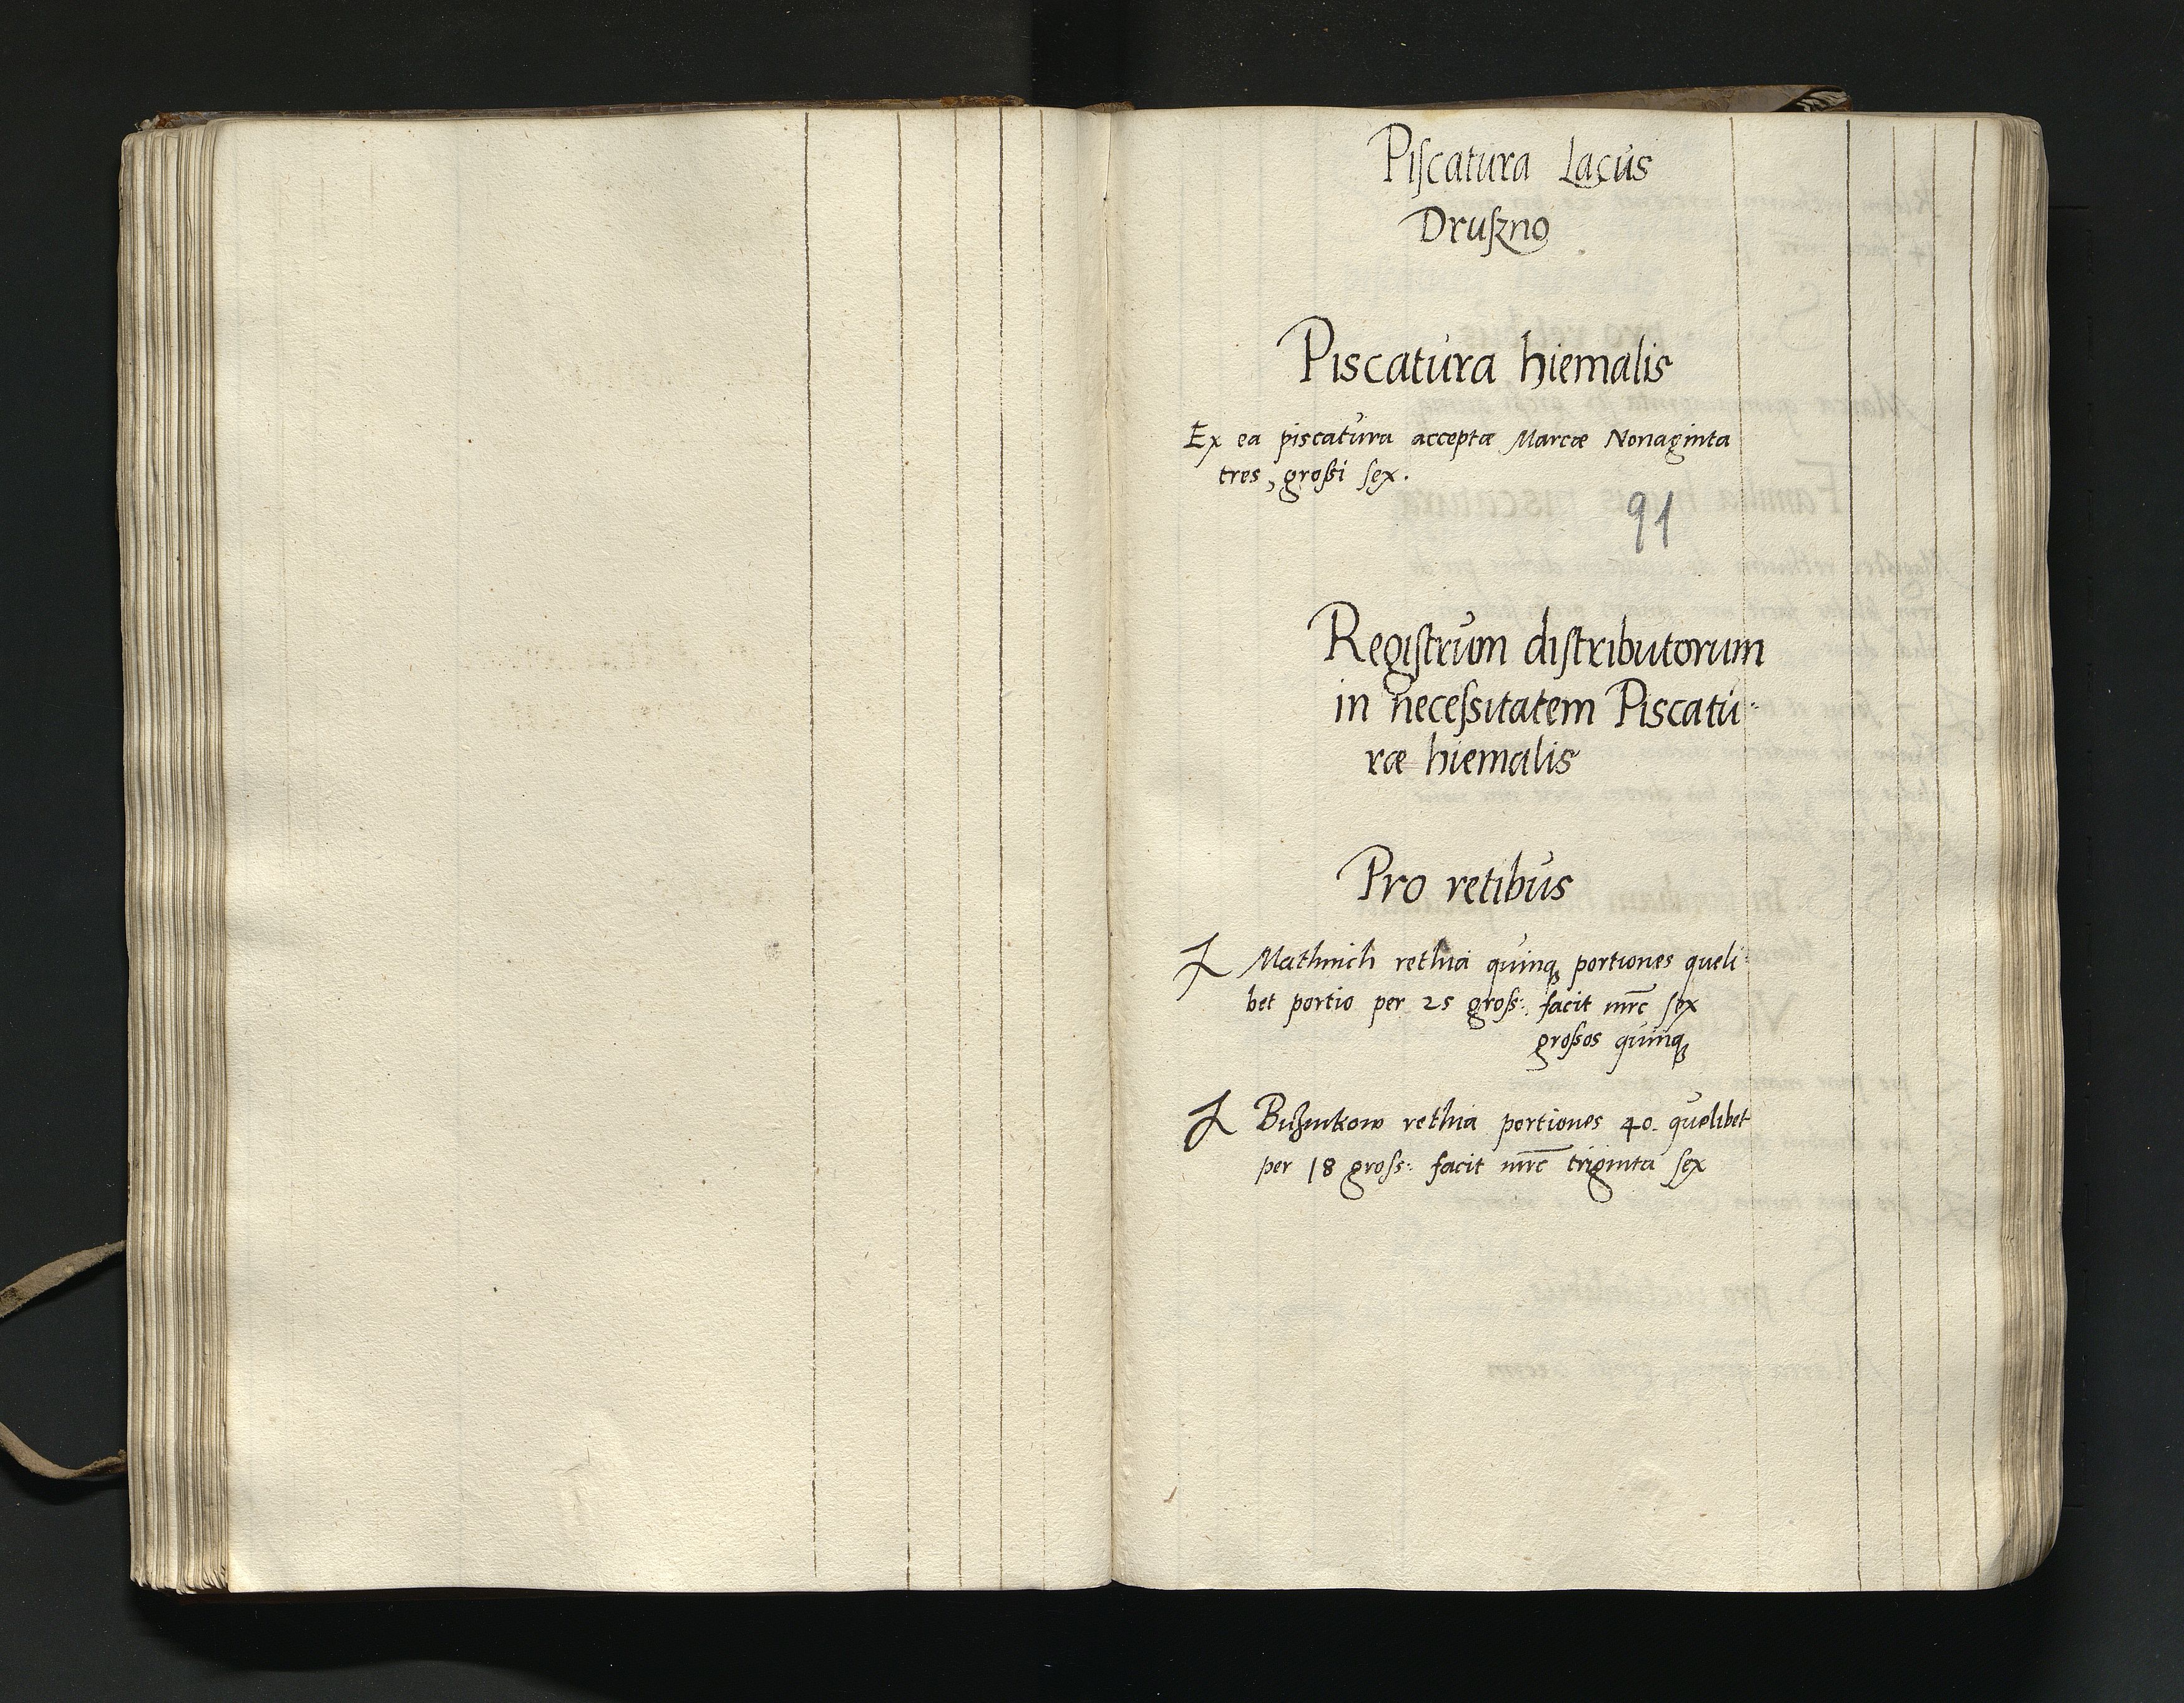 Piſcatura Lacus
Druſzno
Piscatura hiemalis
Ex ea piscatura acceptæ Marcæ Nonaginta
tres, groſſi ſex.
91
Regiſtrum diſtributorum
in neceſsitatem Piscatu⸗
ræ hiemalis
Pro retibus
Mathnich rethia quinqꝫ portiones queli⸗
bet portio per 25 groſs: facit mrc̄ ſex
groſsos quinqꝫ
rethia portiones 40. quelibet
per 18 groſs: facit mrc̄ triginta ſex